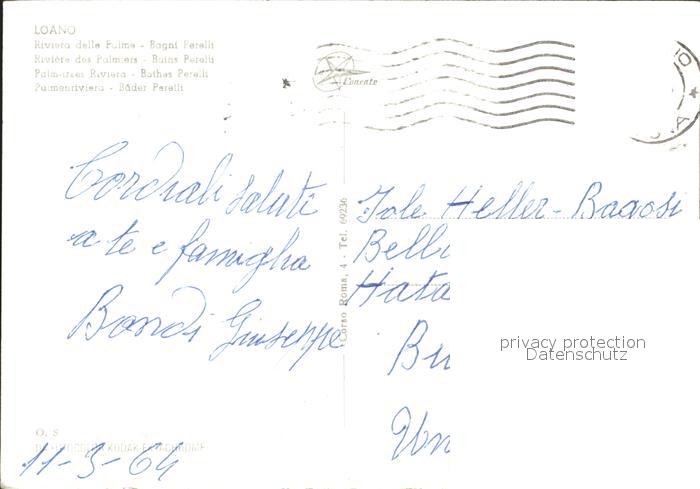 LOANO
Riviera delle Palme - Bagni Perelli
Rivière des Palmiers - Bains Perelli
Palm-trees Riviera - Bathes Perelli
Palmenriviera - Bäder Perelli
Ponente
Cordiali saluti
a te e famiglia
Bondi Giuseppe
Corso Roma, 4 - Tel. 69236
Jole Heller-Bagosi
Belli
Hata
Bu
Un
privacy protection
Datenschutz
O. S
KODAK EKTACHROME
11-3-64